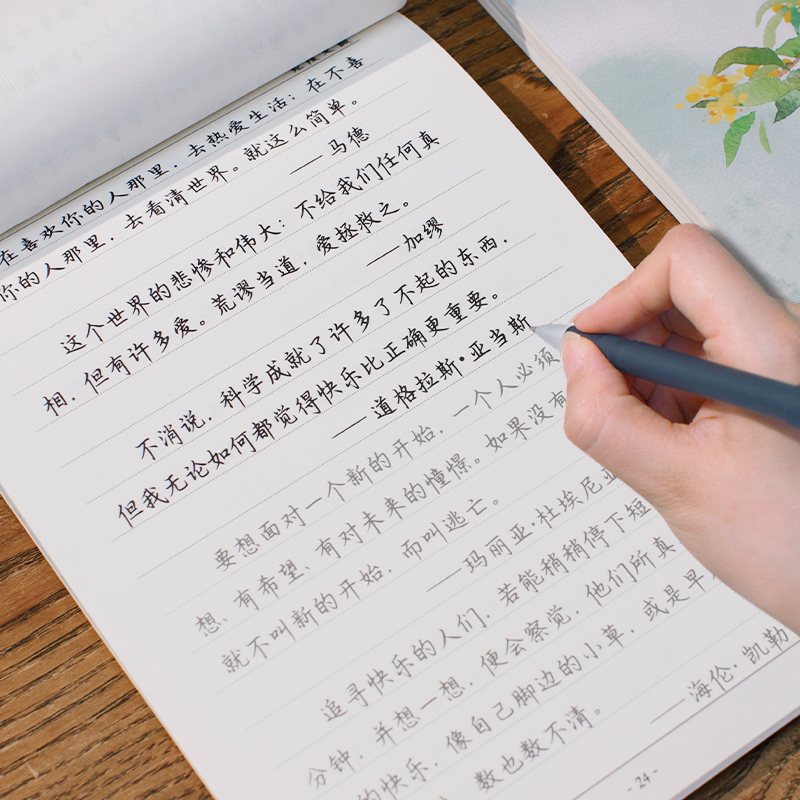 在喜欢你的人那里,去热爱生活;在不喜
你的人那里,去看清世界。就这么简单。
——马德
这个世界的悲惨和伟大:不给我们任何真
相,但有许多爱。荒谬当道,爱拯救之。
——加缪
不消说,科学成就了许多了不起的东西,
但我无论如何都觉得快乐比正确更重要。
——道格拉斯·亚当斯
要想面对一个新的开始,一个人必须
想、有希望、有对未来的憧憬。如果没有
就不叫新的开始,而叫逃亡。
——玛丽亚·杜埃尼亚
追寻快乐的人们,若能稍稍停下短
分钟,并想一想,便会察觉,他们所真
的快乐,像自己脚边的小草,或是早
数也数不清。
——海伦·凯勒
- 24 -